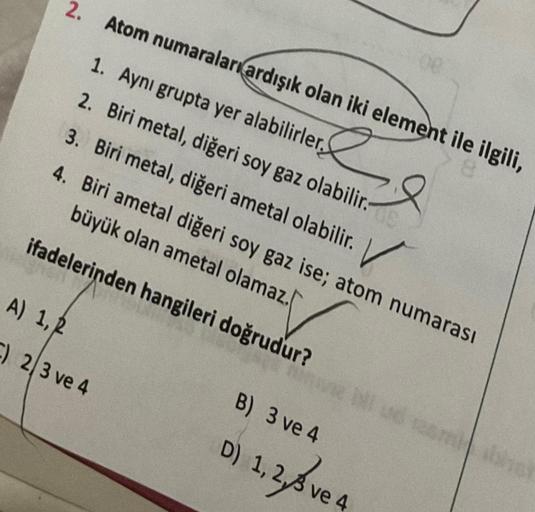 2. Atom numaraları ardışık olan iki element ile ilgili,
1. Aynı grupta yer alabilirler.
2. Biri metal, diğeri soy gaz olabilir.
3. Biri metal, diğeri ametal olabilir.
4. Biri ametal diğeri soy gaz ise; atom numarası
büyük olan ametal olamaz.
ifadelerinden hangileri doğrudur?
A) 1, 2
B) 3 ve 4
C) 2, 3 ve 4
D) 1, 2, 3 ve 4